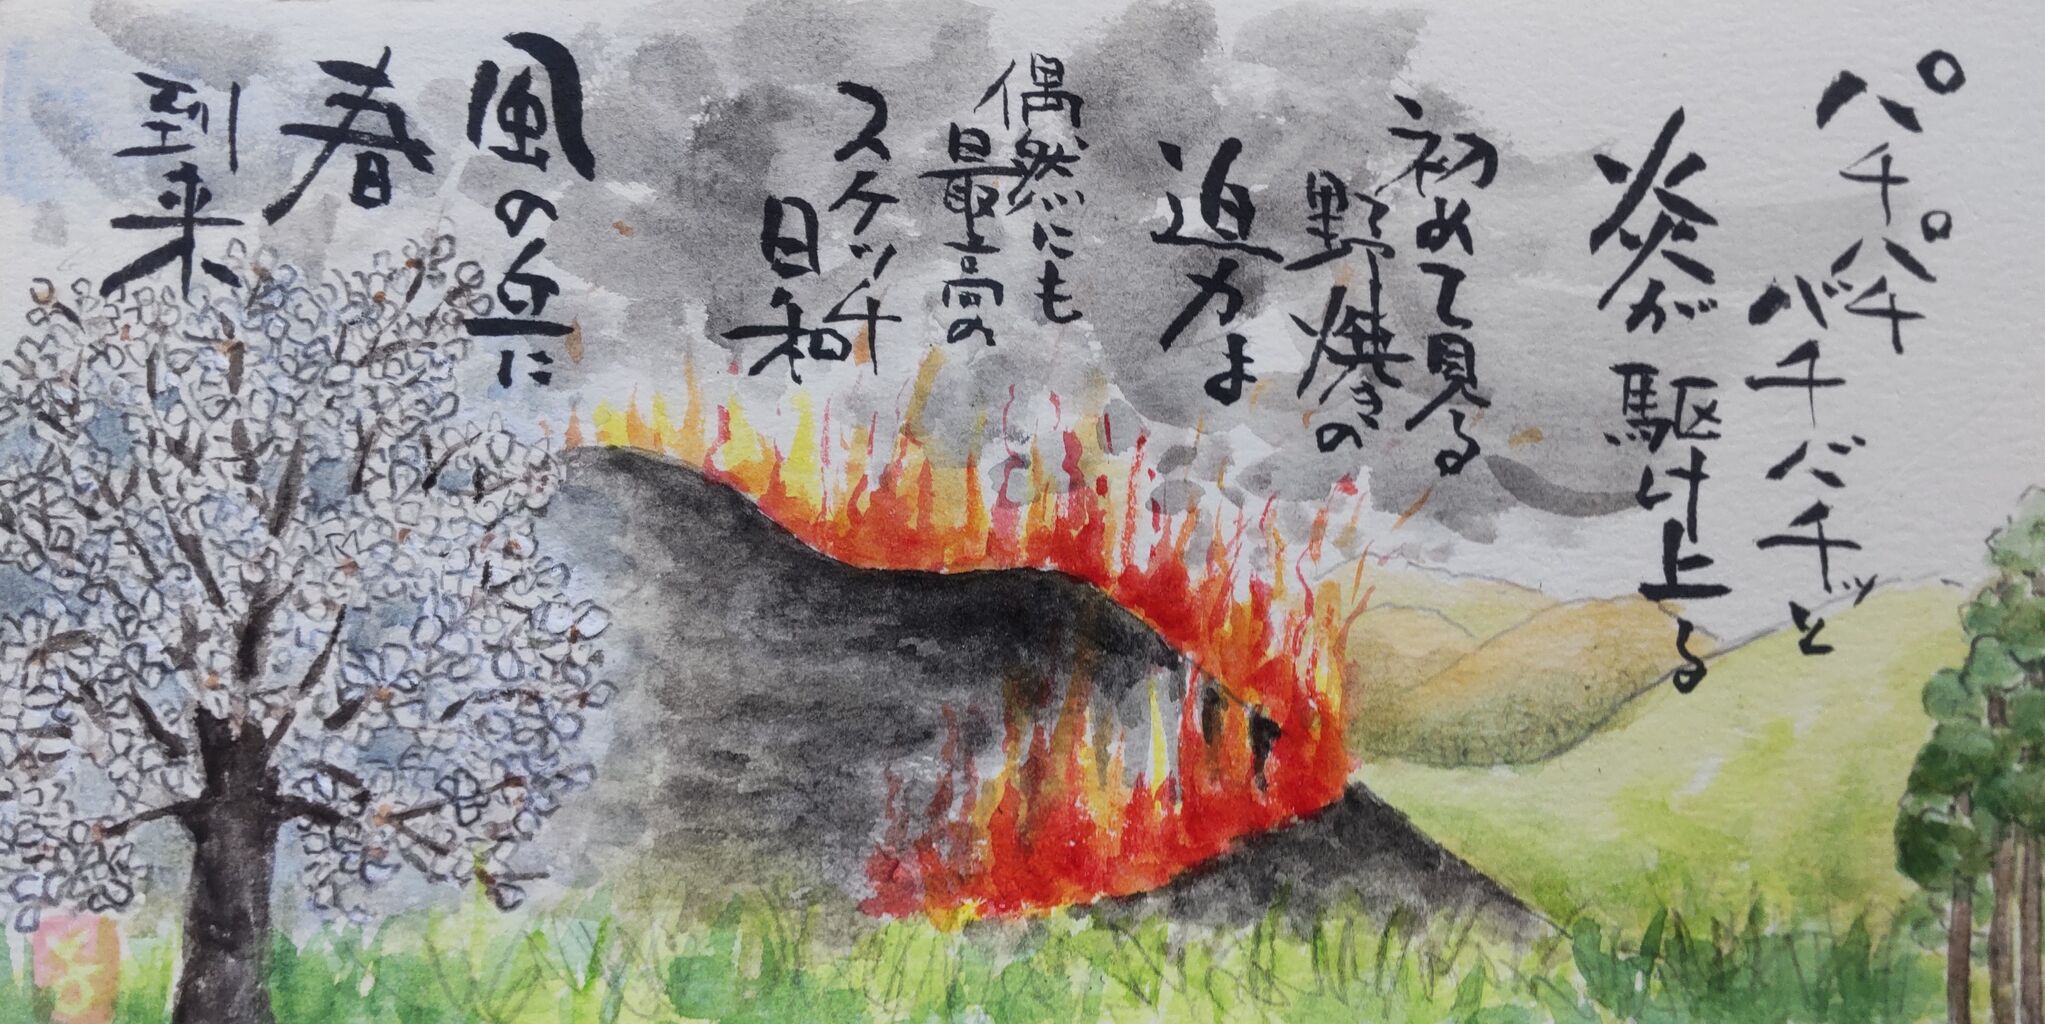 パチパチ
バチバチッと
炎が駆け上る
初めて見る
野焼きの
迫力よ
偶然にも
最高の
スケッチ
日和
風の丘に
春
到来